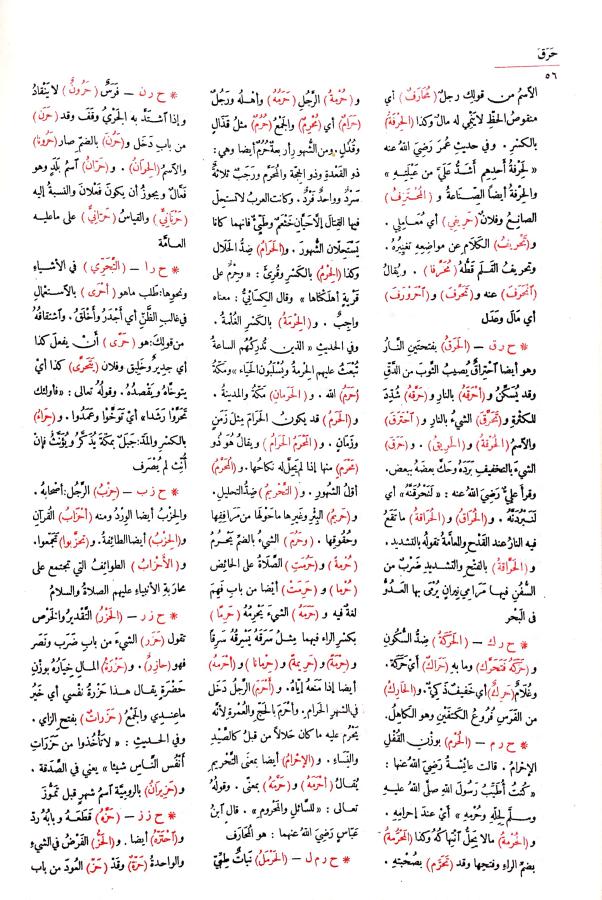 حَرَقَ
٥٦
الاَسمُ من قولِك رجلٌ (مُحَارَفٌ) أي
منقوصُ الحظّ لا يَنْمِي له مالٌ وكذا (الحِرْفَةُ)
بالكسرِ . وفي حديثِ عمرَ رَضِيَ اللهُ عنه
« لَحِرْفَةُ أحدِهم أشدُّ عَلَيَّ من عَيْلَتِهِ »
والحِرْفَةُ أيضاً الصِّنَاعةُ و (المُحْتَرِفُ)
الصانعُ وفلانٌ (حَرِيفِي) أي مُعَامِلِي .
و (تَحْرِيفُ) الكلامِ عن مواضِعِهِ تغييرُهُ .
وتحريفُ القَلَمِ قَطُّهُ (مُحَرَّفا) . ويُقالُ
(آنحَرَفَ) عنه و (تَحَرَّفَ) و (آحْرَوْرَفَ)
أي مَالَ وعَدَل
* ح ر ق – (الحَرَقُ) بفتحتين النَّارُ
وهو أيضا آحْتِراقٌ يُصِيبُ الثوبَ من الدَّقِّ
وقد يُسَكَّنُ و (أَحْرَقَهُ) بالنارِ و (حَرَّقَهُ) شُدِّدَ
للكثرةِ و (تَحَرَّقَ) الشيءُ بالنار و (آحْتَرَقَ)
والاَسمُ (الحُرْقَةُ) و (الحَرِيقُ) . و (حَرَقَ)
الشيءَ بالتخفيفِ بَرَدَهُ وحَكَّ بعضَهُ ببعض .
وقرأ عليٌّ رَضِيَ اللهُ عنه : « لَنَحْرُقَنَّهُ » أي
لَنَبْرُدَنَّهُ . و (الحُرَاقُ) و (الحُرَاقَةُ) ما تَقَعُ
فيه النارُ عند القَدْحِ والعامَّةُ تقولُهُ بالتشديدِ .
و (الحَرَّاقَةُ) بالفتحِ والتشديدِ ضَرْبٌ من
السُّفُنِ فيها مَرَامِي نِيرانٍ يُرْمَى بها العَدُوُّ
فى البَحْر
* ح ر ك – (الحَرَكَةُ) ضِدُّ السُّكُونِ
و (حَرَّكَهُ فَتَحَرَّكَ) وما بِهِ (حَرَاكٌ) أي حَرَكَةٌ .
وغُلَامٌ (حَرِكٌ) أي خَفِيفٌ ذَكِيٌّ . و (الحَارِكُ)
من الفَرَسِ فُرُوعُ الكَتِفَيْنِ وهو الكاهِلُ.
* ح ر م – (الحُرْمُ) بوزنِ القُفْلِ
الإحْرامُ . قالت عائِشَةُ رَضِيَ اللهُ عنها :
« كُنْتُ أُطَيِّبُ رَسُولَ اللهِ صلَّى اللهُ عليهِ
وسلَّم لِحِلِّهِ وحُرْمِهِ » أي عندَ إحرامِهِ .
و (الحُرْمَةُ) مالا يَحِلُّ آنتِهاكُهُ وكذا (المَحْرُمَةُ)
بضم الراء وفتحها وقد (تَحَرَّمَ) بصُحْبَتِهِ .
و (حُرْمَةُ) الرَّجُلِ (حَرَمُهُ) وأهْلُهُ ورَجُلٌ
(حَرَامٌ) أي (مُحْرِمٌ) والجَمْعُ (حُرُمٌ) مثلُ قَذَالٍ
وقُذُلٍ . ومن الشُّهورِ أربعةٌ حُرُمٌ أيضا وهي :
ذو القَعْدَةِ وذو الحِجَّةِ والمُحَرَّمُ ورَجَبٌ ثلاثةٌ
سَرْدٌ وواحِدٌ فَرْدٌ . وكانت العربُ لا تستحِلُّ
فيها القِتالَ إلَّا حَيَّانِ خَثْعَمُ وطَيِّئٌ فإنهما كانا
يَسْتَحِلَّانِ الشُّهورَ . و (الحَرَامُ) ضِدُّ الحَلَالِ
وكذا (الحِرْمُ) بالكَسْرِ وقُرِئَ : « وحِرْمٌ على
قَرْيَةٍ أهلَكْناها » وقال الكِسائِيُّ : معناه
واجِبٌ . و (الحِرْمَةُ) بالكسْرِ الغُلْمَةُ .
وفي الحديث « الذين تُدْرِكُهُم الساعةُ
تُبْعَثُ عليهم الحِرْمَةُ ويُسْلَبُونَ الحَيَاءَ » ومَكَّةُ
(حَرَمُ) الله . و (الحَرَمانِ) مَكَّةُ والمدينةُ .
و (الحَرَمُ) قد يكونُ الحَرَامَ مِثلُ زَمَنٍ
وزَمَانٍ . و (المَحْرَمُ الحَرَامُ) ويقالُ هو ذُو
(مَحْرَمٍ) منها إذا لم يَحِلَّ له نكاحُها . و (المُحَرَّمُ)
أوّلُ الشُّهورِ . و (التَّحْرِيمُ) ضِدُّ التحليلِ .
و (حَرِيمُ) البِئْرِ وغيرِها ما حَوْلَهَا من مَرَافِقِها
وحُقُوقِها . و (حَرُمَ) الشيءُ بالضمِّ يَحْرُمُ
(حُرْمَةً) و (حَرُمَتِ) الصَّلاةُ على الحائضِ
(حُرْما) و (حَرِمَتْ) أيضا من بابِ فَهِمَ
لغةٌ فيه و (حَرَمَهُ) الشيءَ يَحْرِمُهُ (حَرِماً)
بكسرِ الراءِ فيهما مِثْلُ سَرَقَهُ يَسْرِقُهُ سَرِقاً
و (حِرْمَةً) و (حَرِيمةً) و (حِرْمانا) و (أَحْرَمَهُ)
أيضا إذا مَنَعَهُ إيَّاهُ . و (أَحْرَمَ) الرَّجُلُ دَخَلَ
في الشهرِ الحرامِ . وأحْرَمَ بالحَجِّ والعُمْرَةِ لأنّه
يَحْرُمُ عليه ما كان حَلَالًا من قبلُ كالصَّيْدِ
والنِّسَاءِ . و (الإحْرامُ) أيضا بمعنَى التَّحْرِيمِ
يُقَالُ (أَحْرَمَهُ) و (حَرَّمَهُ) بمعنًى . وقولُهُ
تعالى : « للسَّائِلِ والمَحْرومِ » . قال آبنُ
عبَّاسٍ رَضِيَ اللهُ عنهما : هو المُحَارَفُ
* ح ر م ل – (الحَرْمَلُ) نَبَاتٌ طِبِّيٌّ
* ح ر ن – فَرَسٌ (حَرُونٌ) لا يَنْقَادُ
وإذا آشتَدَّ به الجَرْيُ وَقَفَ وقد (حَرَنَ)
من بابِ دَخَلَ و (حَرُنَ) بالضمِّ صار (حَرُونا)
والاَسمُ (الحِرَانُ) . و (حَرَّانُ) اَسمُ بَلَدٍ وهو
فَعَّالٌ ويجوزُ أن يكونَ فَعْلانَ والنسبةُ إليه
(حَرْنَانِيٌّ) والقياسُ (حَرَّانِيٌّ) على ما عليه
العامَّة
* ح ر ا – (التَّحَرِّي) في الأشياءِ
ونحوِها : طلبُ ماهو (أحْرَى) بالآستعمالِ
في غالبِ الظَّنِّ أي أَجْدَرُ وأَخْلَقُ . وآشتقاقُهُ
من قولِك : هو (حَرًى) أَنْ يفعلَ كذا
أي جديرٌ وخَلِيقٌ وفلان (يَتَحَرَّى) كذا أيْ
يتوخَّاهُ ويَقْصِدُهُ . وقولُهُ تعالى : « فأولئك
تَحَرَّوْا رَشَدا » أيْ تَوَخَّوْا وعَمَدُوا . و (حِرَاءٌ)
بالكسرِ والمدّ : جَبَلٌ بمكَّةَ يُذَكَّرُ ويُؤَنَّثُ فإنْ
أُنِّثَ لم يُصْرَف
* ح ز ب – (حِزْبُ) الرَّجُلِ : أصحابُهُ .
والحِزْبُ أيضا الوِرْدُ ومنه (أحْزَابُ) القُرآنِ
و (الحِزْبُ) أيضا الطائفةُ . و (تَحَزَّبوا) تجمَّعوا .
و (الأَحْزَابُ) الطوائفُ التي تجتمعُ على
محارَبةِ الأنبياءِ عليهم الصلاةُ والسلامُ
* ح ز ر – (الحَزْرُ) التَّقْدِيرُ والخَرْصُ
تقول (حَزَرَ) الشيءَ من بابِ ضَرَبَ ونَصَرَ
فهو (حازِرٌ) . و (حَزْرَةُ) المالِ خِيَارُهُ بوزنِ
حَضْرَةٍ يقال هـذا حَزْرَةُ نَفْسِي أي خَيْرُ
ماعِندِي والجمْعُ (حَزَرَاتٌ) بفتحِ الزاي .
وفي الحديثِ : « لا تأخُذُوا من حَزَرَاتِ
أَنْفُسِ النَّاسِ شيئا » يعني في الصدقةِ .
و (حَزِيرَانُ) بالروميَّةِ آسمُ شهرٍ قبلَ تَمُّوزَ
* ح ز ز – (حَزَّهُ) قَطَعَهُ وبابُهُ ردَّ
و (آحْتَزَّهُ) أيضا . و (الحَزُّ) الفَرْضُ في الشيءِ
والواحدةُ (حَزَّةٌ) وقَدْ (حَزَّ) العُودَ من باب